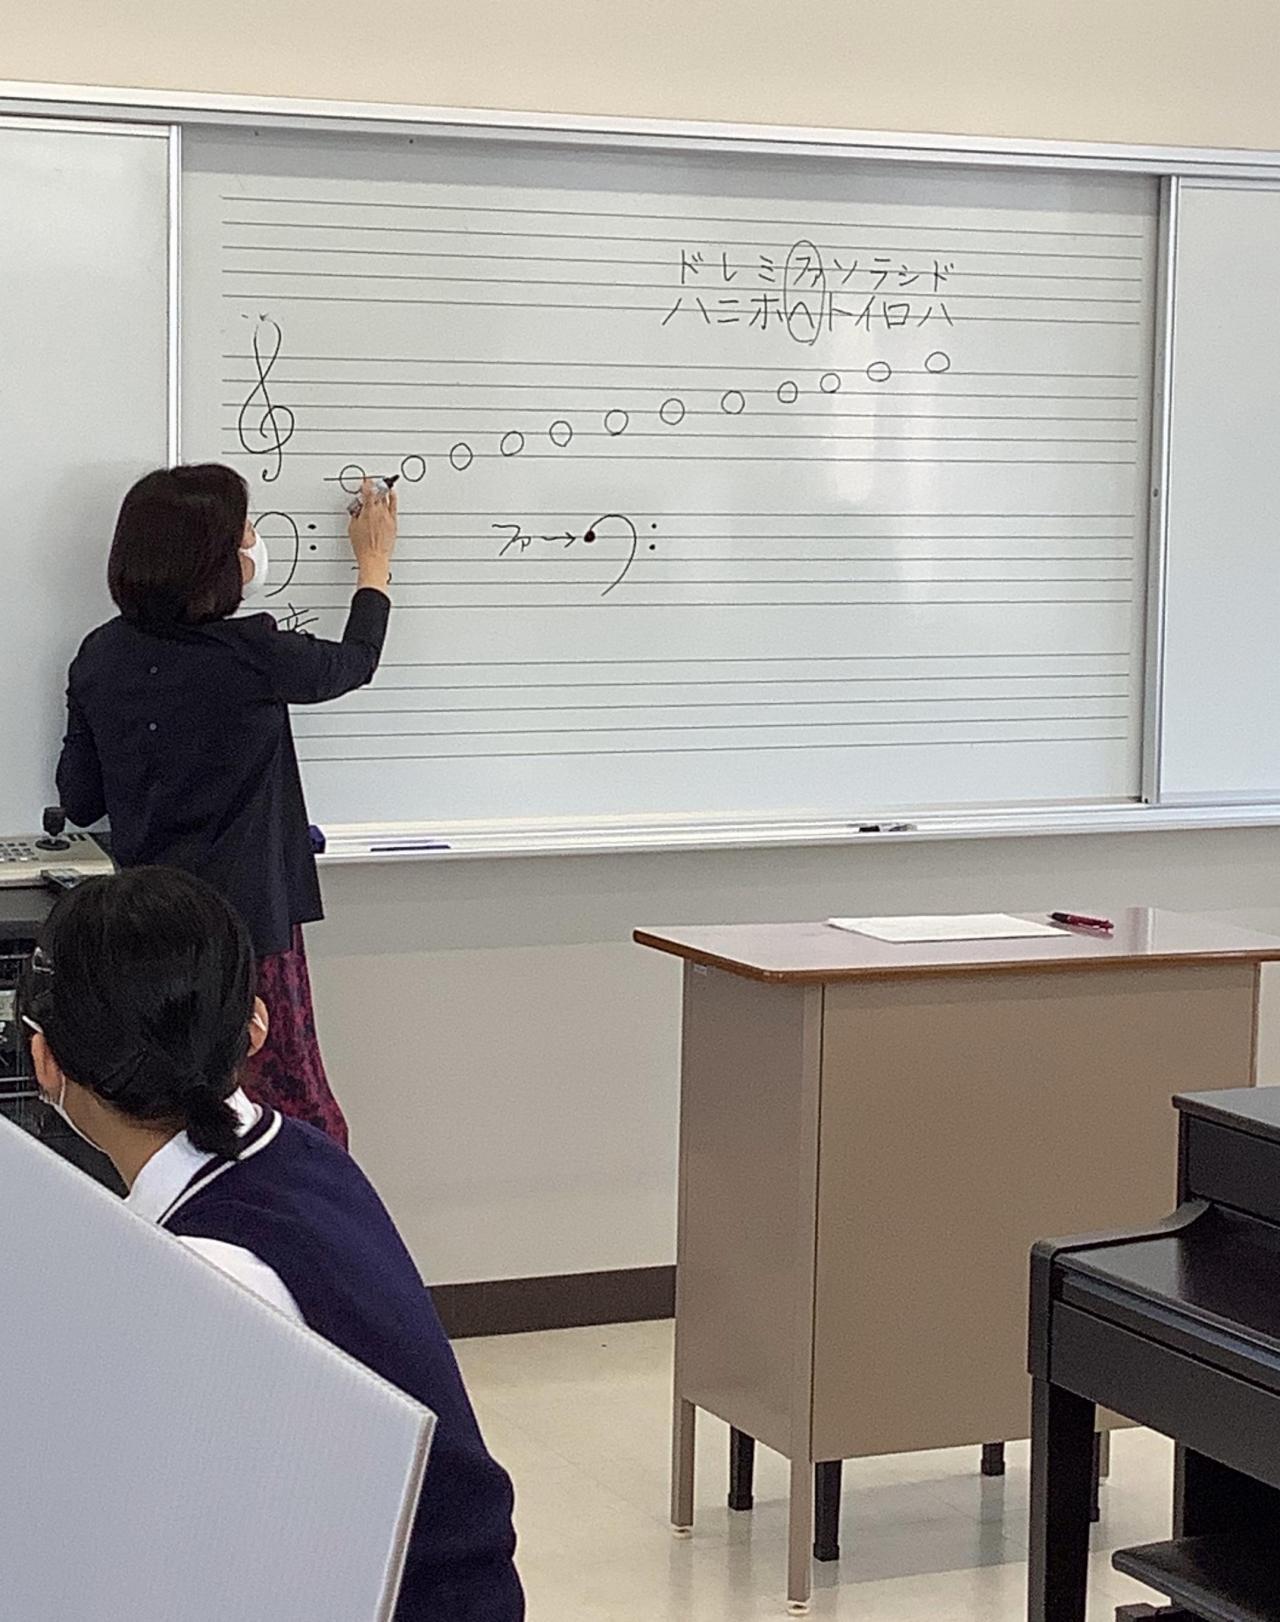 ドレミファソラシド
ハニホヘトイロハ
ファ→
音